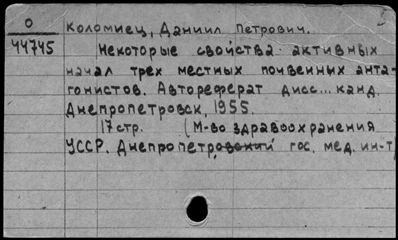 О Коломиец, Даниил Петрович.
44745 Некоторые свойства активных
начал трех местных почвенных анта-
гонистов. Автореферат дисс... канд.
Днепропетровск, 1955.
17 стр. (М-во здравоохранения
УССР. Днепропетровский гос. мед. ин-т)